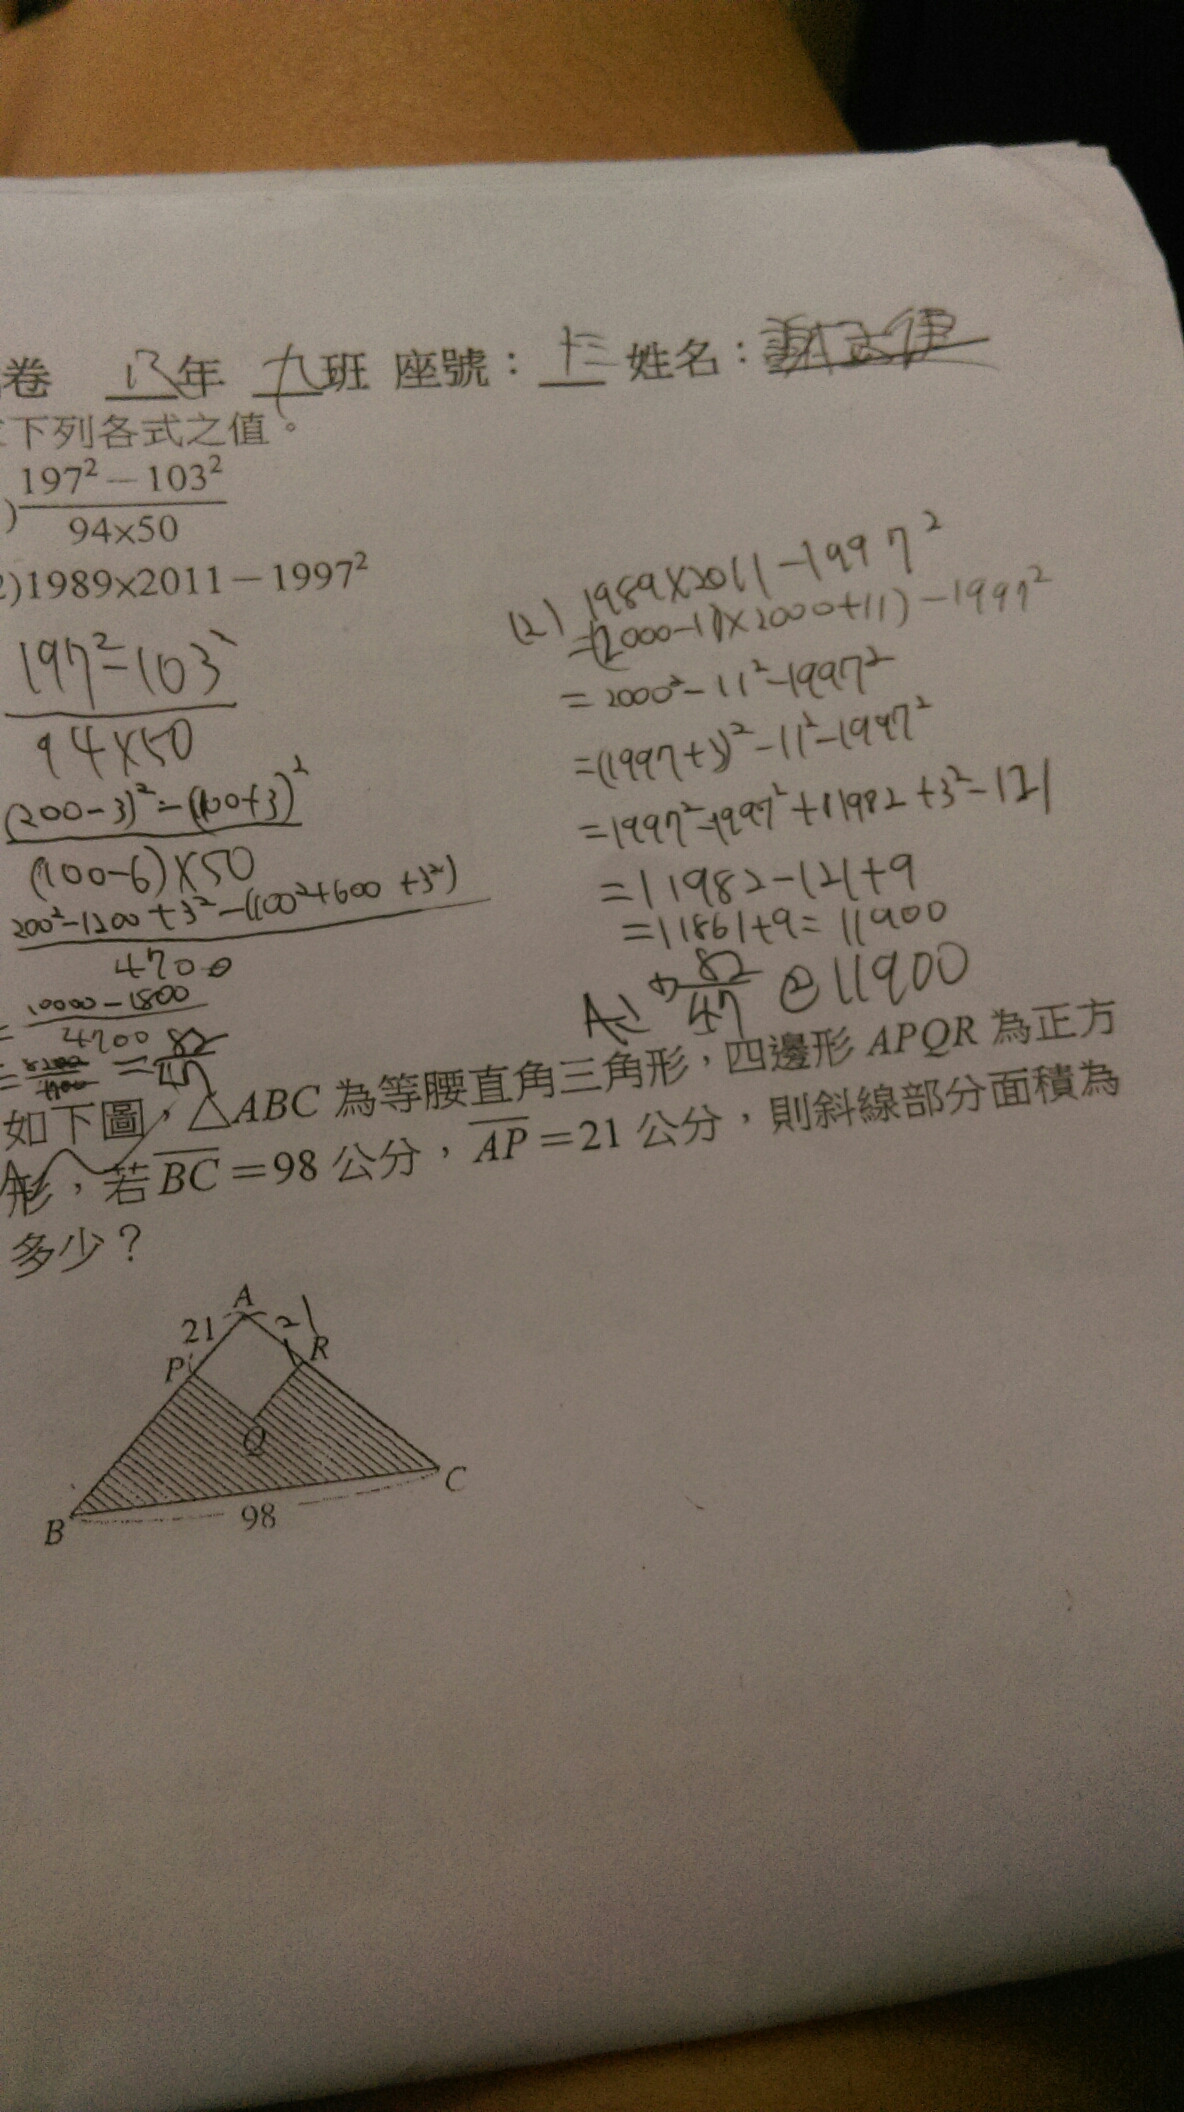 卷 年 九班 座號：十三 姓名：
下列各式之值。
)197²－103²
94×50
2)1989×2011－1997²
197²-103²
94×50
(200-3)²-(100+3)²
(100-6)×50
200²-1200+3²-(100²+600+3²)
4700
10000-1800
4700
= =82
47
(2) 1989×2011-1997²
=(2000-11)×2000+11)-1997²
=2000²-11²-1997²
=(1997+3)²-11²-1997²
=1997²-1997²+11982+3²-121
=11982-121+9
=11861+9=11900
A: ① 82 ② 11900
47
如下圖，△ABC 為等腰直角三角形，四邊形 APQR 為正方
形，若 BC＝98 公分，AP＝21 公分，則斜線部分面積為
多少？
A
21 21
P R
Q
B 98 C